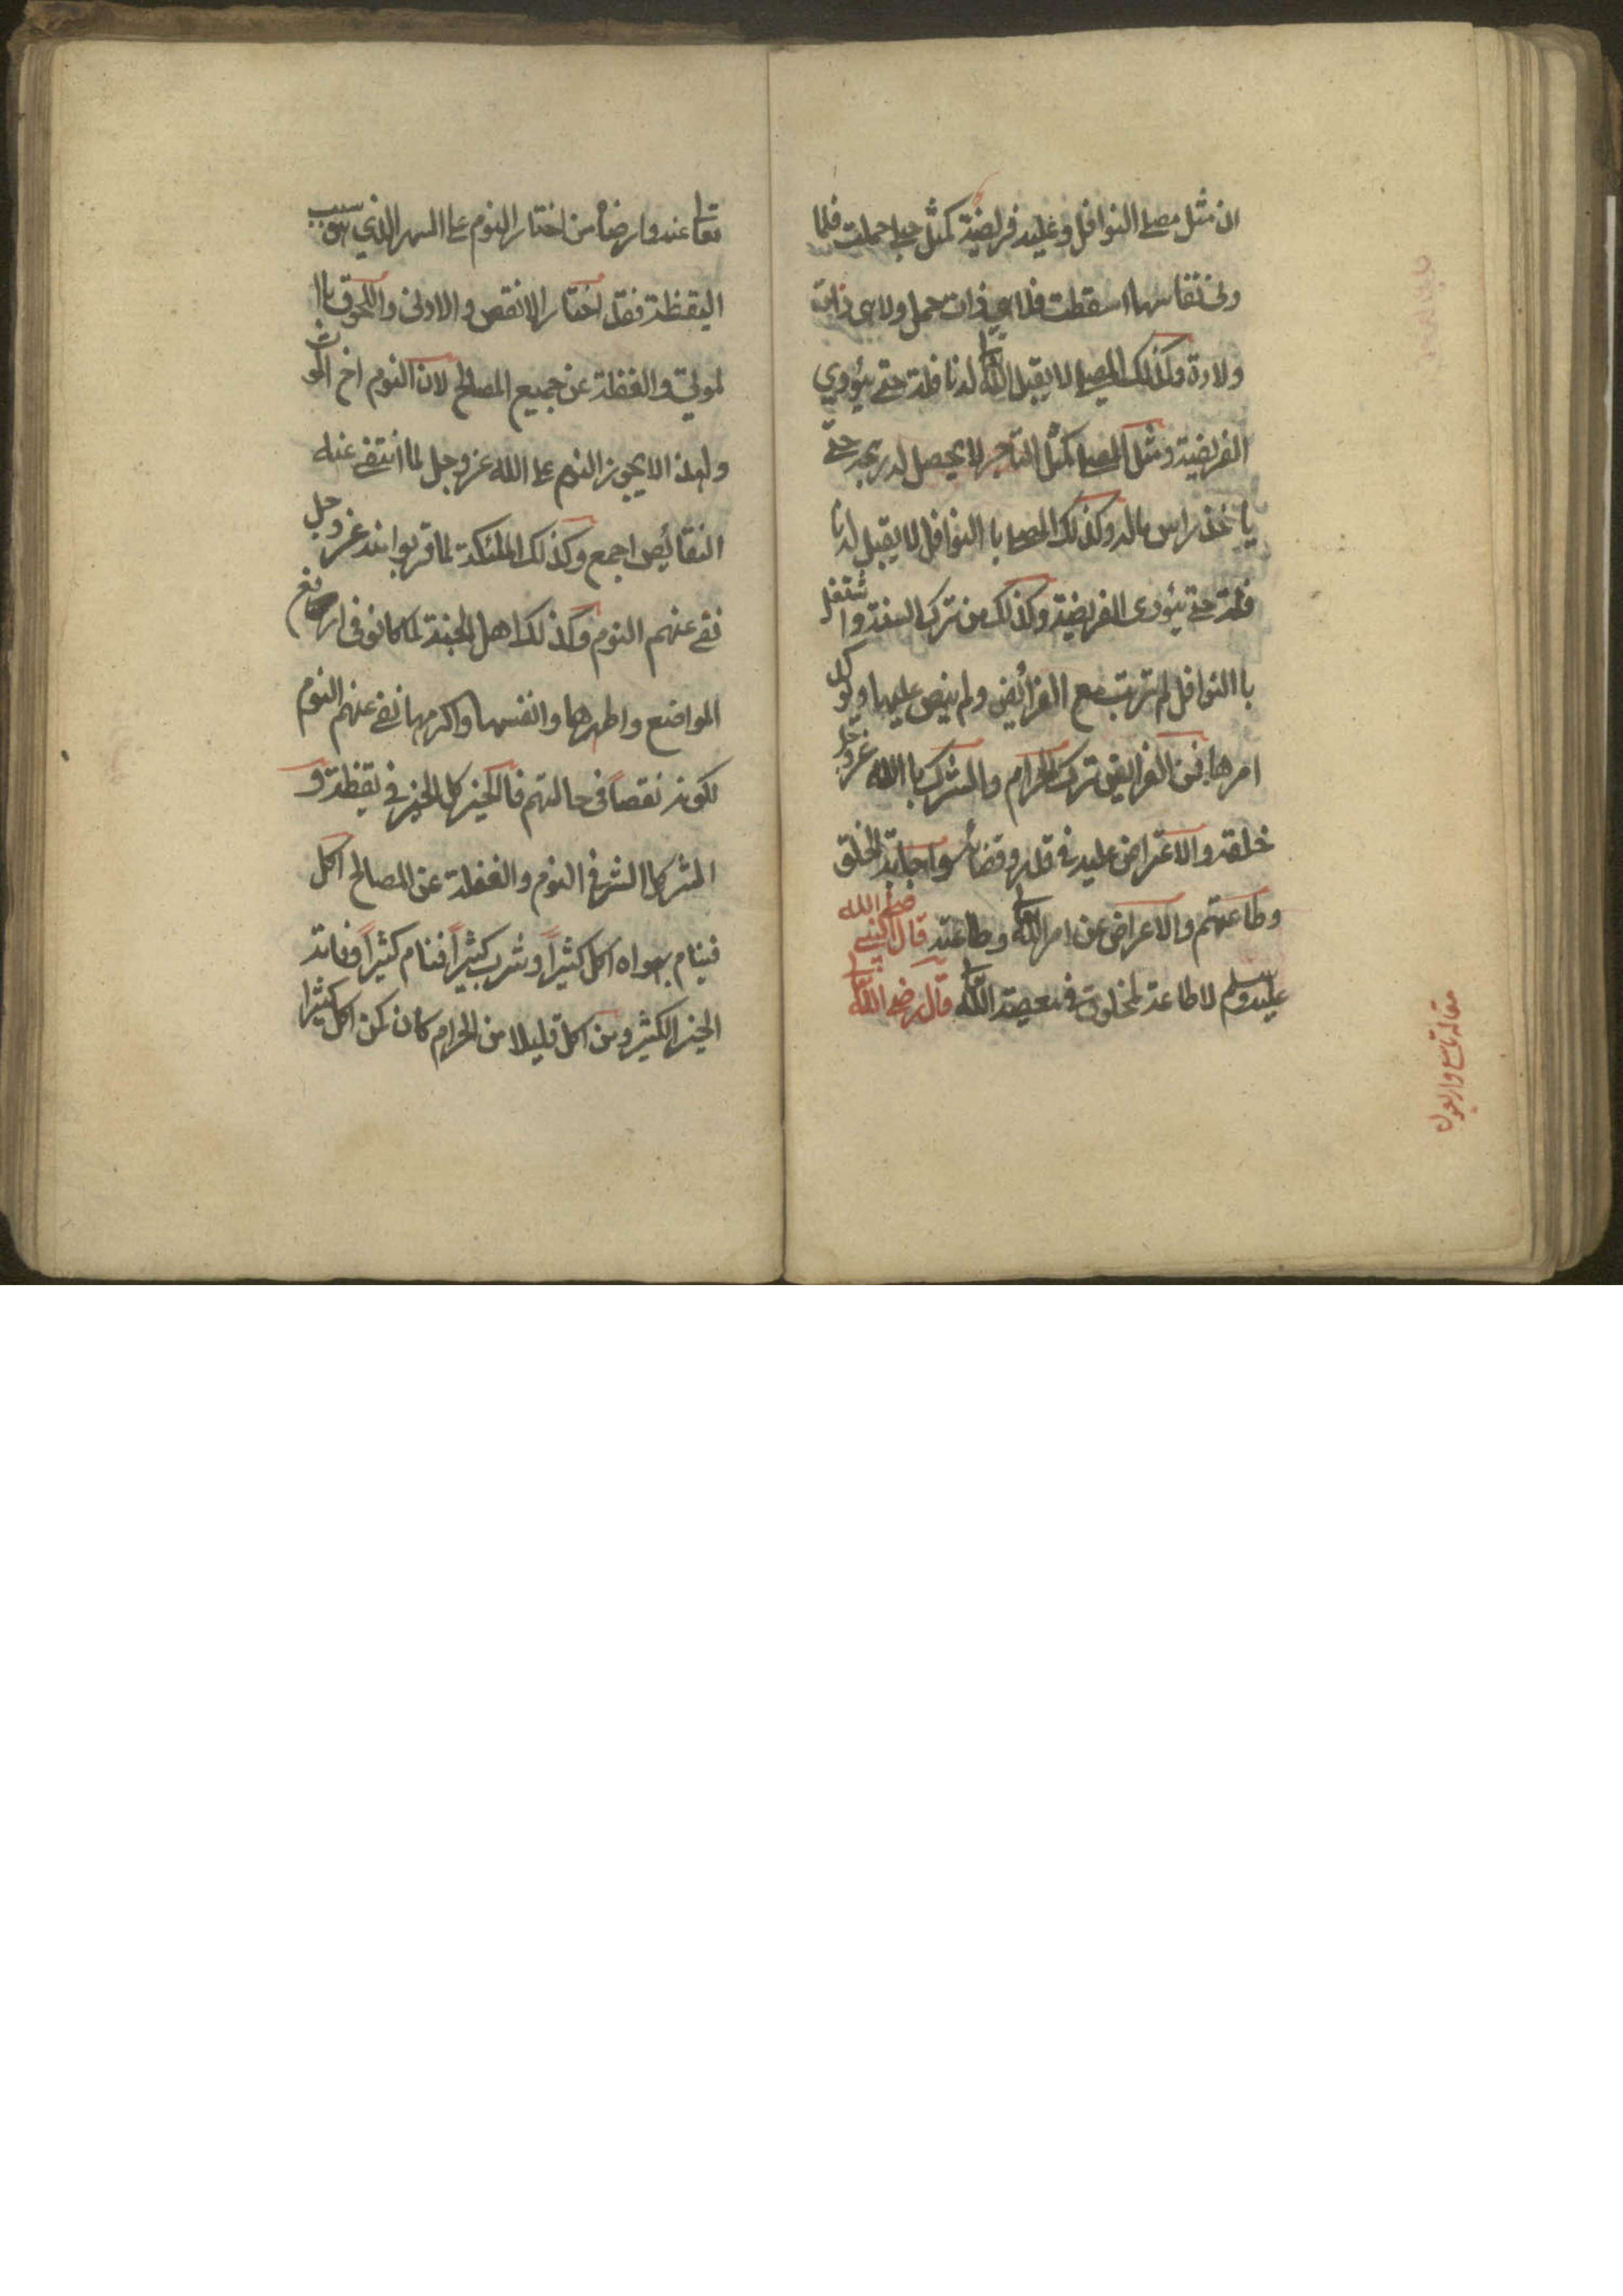 ان مثل مصلى النوافل وعليه فريضة كمثل حبلى حملت فلما
دنى نفاسها اسقطت فلا هي ذات حمل ولا هي ذات
ولادة وكذلك المصلى لا يقبل الله تعا له نافلة حتى يئودي
الفريضة ومثل المصلى كمثل التاجر لا يحصل له ربحه حتى
ياخذ راس ماله وكذلك المصلى باالنوافل لا يقبل له نا
فلة حتى يئودى الفريضة وكذلك من ترك السنة واشتغل
باالنوافل لم ترتب مع الفرائض ولم ينص عليها و
امرها فمن الفرايض ترك الحرام والشرك باالله عز وجل
خلقه والاعتراض عليه فى قدره وقضائه واجابة الخلق
وطاعتهم والاعراض عن امر الله تعا وطاعته قال النبى صلى الله
عليه وسلم لا طاعة لمخلوق فى معصية الله تعا قال رضى الله تعا
مقاله تاسع واربعون
عنه وارضاه من اختار النوم على السهر الذي هو سبب
اليقظة فقد اختار الانقص والادنى واللحوق باا
لموتى والغفلة عن جميع المصالح لان النوم اخ الموت
ولهذا لا يجوز النوم على الله عز وجل لما انتفى عنه
النقائص اجمع وكذلك الملئكة لما قربوا منه عز وجل
نفى عنهم النوم وكذلك اهل الجنة لما كانو فى ارفع
المواضع واطهرها وانفسها واكرمها نفى عنهم النوم
لكونه نقصاً فى حالتهم فاالخير كل الخير فى يقظة و
الشر كل الشر فى النوم والغفلة عن المصالح اكل
فينام بهواه اكل كثيراً وشرب كثيراً فنام كثيراً وفاته
الخير الكثير ومن اكل قليلا من الحرام كان كمن اكل كثيرا